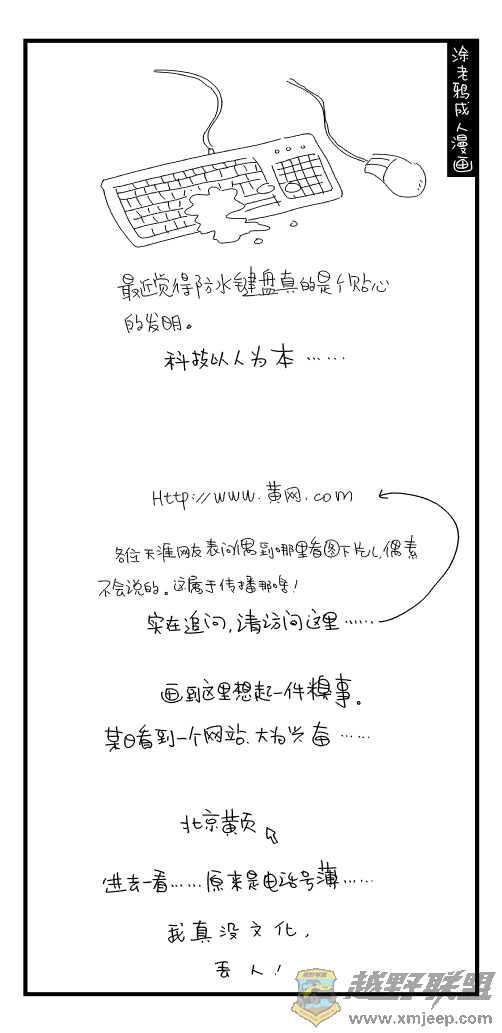 涂老鸦成人漫画
最近觉得防水键盘真的是个贴心
的发明。
科技以人为本……
Http://www.黄网.com
各位天涯网友表问偶到哪里看图下片儿,偶素
不会说的。这属于传播那啥!
实在追问,请访问这里……
画到这里想起一件糗事。
某日看到一个网站,大为兴奋……
北京黄页
进去一看……原来是电话号薄……
我真没文化,
丢人!
越野联盟
www.xmjeep.com